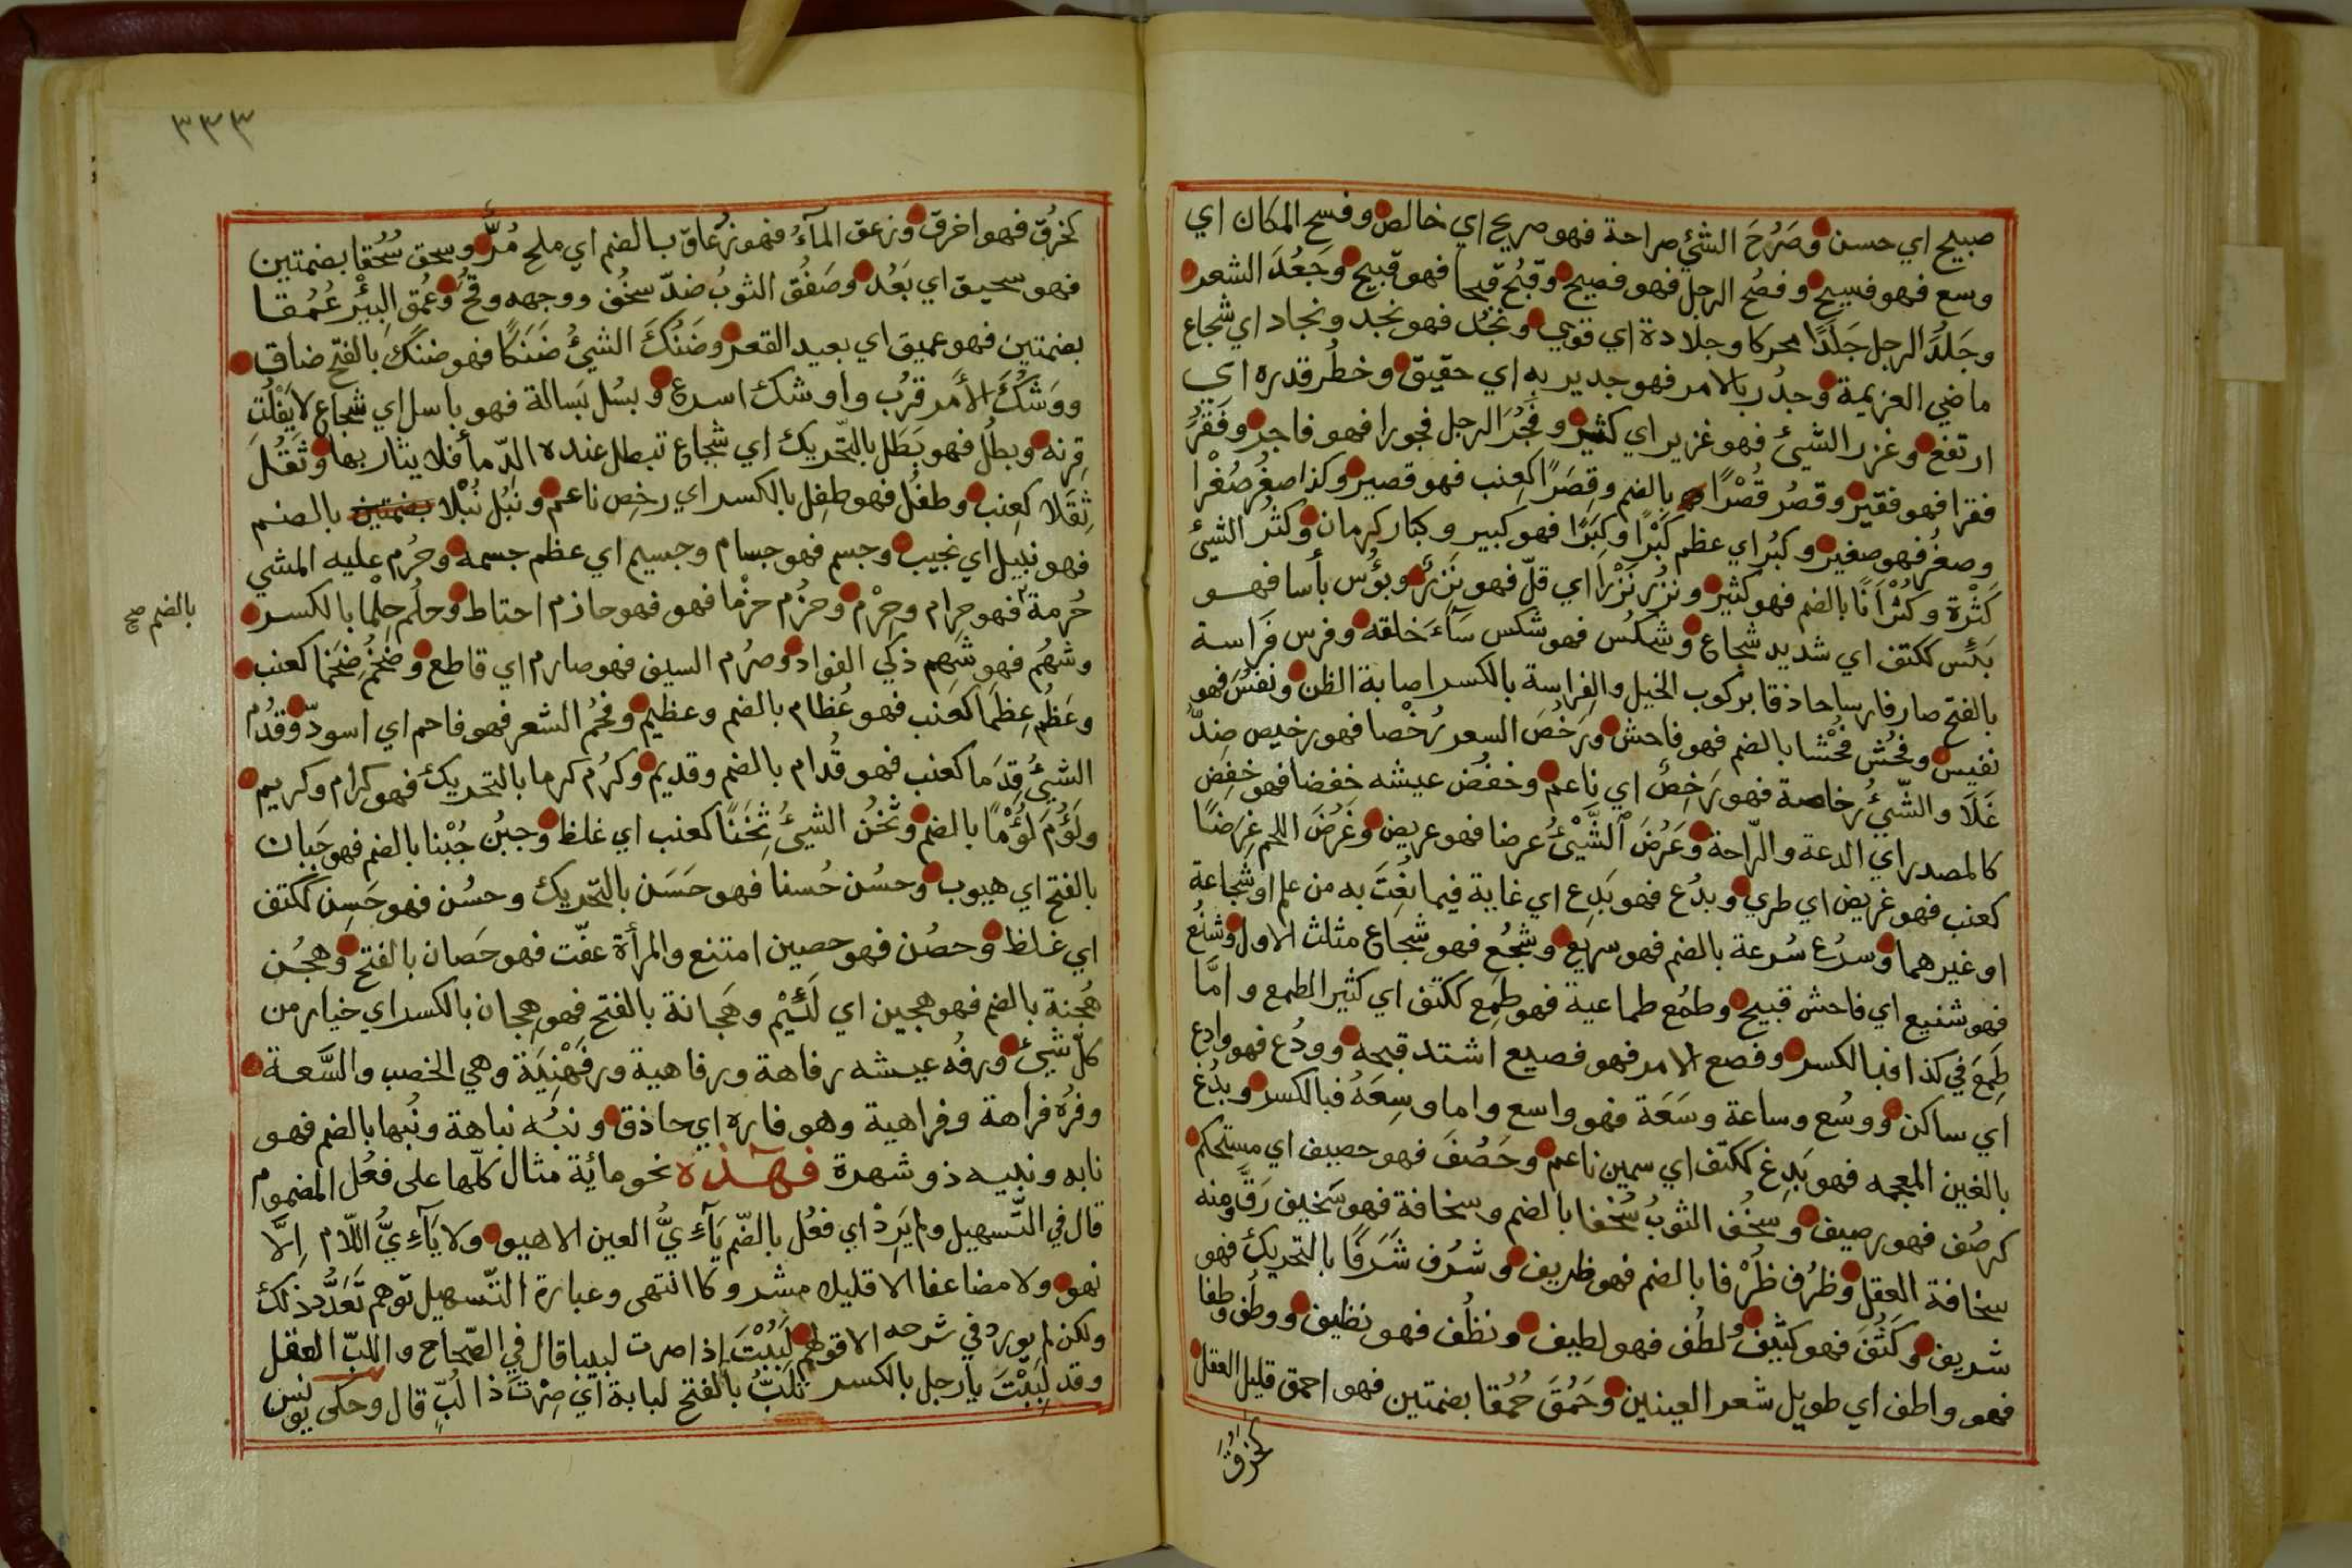 صبيح اي حسن وصَرُحَ الشيُ صراحة فهو صريح اي خالص وفسح المكان اي
وسع فهو فسيح وفصُح الرجل فهو فصيح وقبُح قبحا فهو قبيح وجَعُدَ الشعر
وجَلُدَ الرجل جَلَدًا محركا وجلادة اي قوي ونجُد فهو نجد ونجاد اي شجاع
ماضي العزيمة وجدُر بالامر فهو جدير به اي حقيق وخطُر قدره اي
ارتفع وغزر الشيئ فهو غزير اي كثير وفَجُرَ الرجل فجورا فهو فاجر وفَقُرَ
فقرا فهو فقير وقصُر قُصْرًا بالضم وقِصَرًا كعنب فهو قصير وكذا صغُر صُغْرا
وصغُر فهو صغير وكبُر اي عظم كَبْرًا وكِبَرًا فهو كبير وكبار كرمان وكثُر الشيئ
كَثْرة وكُثْرَانًا بالضم فهو كثير ونزُر نَزْرًا اي قلّ فهو نَزْرٌ وبؤُس بأسا فهو
بَئِس ككتف اي شديد شجاع وشكُس فهو شكس سَآءَ خلقه وفرس فَراسة
بالفتح صار فارسا حاذقا بركوب الخيل والفِراسة بالكسر اصابة الظن ونفُسَ فهو
نفيس وفحُش فُحْشا بالضم فهو فاحش ورَخُصَ السعر رُخْصا فهو رخيص ضِدُّ
غَلَا والشّيُ رخاصة فهو رَخِصٌ اي ناعم وخفُض عيشه خفضا فهو خفِض
كالمصدر اي الدعة والرّاحة وعَرُضَ الشَّيْئُ عرضا فهو عريض وغَرُضَ اللحم غِرَضًا
كعنب فهو غريض اي طري وبدُع فهو بَدِع اي غاية فيما نُعِتَ به من علم او شجاعة
او غيرهما وسرُع سُرعة بالضم فهو سريع وشجُع فهو شجاع مثلث الاول وشنُع
فهو شنيع اي فاحش قبيح وطمُع طماعية فهو طمِع ككتف اي كثير الطمع وامَّا
طمِعَ في كذا فبالكسر وفصع الامر فهو فصيع اشتد قبحه وودُع فهو وادع
اي ساكن ووسُع وساعة وسَعَة فهو واسع واما وسِعَهُ فبالكسر وبدُغ
بالغين المعجمه فهو بَدِغ ككتف اي سمين ناعم وحَصُفَ فهو حصيف اي مستحكم
كرصُف فهو رصيف وسخُف الثوبُ سُخْفا بالضم وسخافة فهو سَخيف رَقَّ ومنه
سخافة العقل وظرُف ظُرْفا بالضم فهو ظريف وشرُف شَرَفًا بالتحريك فهو
شريف وكَثُفَ فهو كثيف ولطُف فهو لطيف ونظُف فهو نظيف ووطُف وطفا
فهو واطف اي طويل شعر العينين وحَمُقَ حُمُقا بضمتين فهو احمق قليل العقل
كخَرُقَ
٣٣٣
كخرُق فهو اخرق وزعق المآءُ فهو زُعاق بالضم اي ملح مُرٌّ وسحق سُحُقا بضمتين
فهو سحيق اي بَعُدَ وصَفُق الثوبُ ضدّ سخُف ووجهه وقُح وعمُق البِئر عُمُقا
بضمتين فهو عميق اي بعيد القعر وضَنُكَ الشيئُ ضَنَكًا فهو ضنك بالفتح ضاق
ووَشُكَ الأمر قرُب واوشك اسرع وبسُل بَسالة فهو باسل اي شجاع لا يَفْلُت
قِرنه وبطُل فهو بَطَل بالتّحريك اي شجاع تبطل عنده الدّمأ فلا يثار بها وثَقُلَ
ثِقَلا كعِنب وطفُل فهو طِفل بالكسر اي رخِص ناعم ونَبُل نُبْلا بضمتين بالضم
فهو نبيل اي نجيب وجسم فهو جسام وجسيم اي عظم جسمه وحرُم عليه المشي
حُرمة فهو حرام وحِرْم وحزُم حزْما فهو فهو حازم احتاط وحلُم حِلْما بالكسر
بالضم صح
وشهُم فهو شهم ذكي الفواد وصرُم السيف فهو صارم اي قاطع وضخُم ضِخَما كعنب
وعَظُم عِظَما كعَنب فهو عُظام بالضم وعظيم وفحُم الشعر فهو فاحم اي اسود وقدُم
الشيُ قِدَما كعنب فهو قُدام بالضم وقديم وكرُم كرما بالتحريك فهو كرام وكريم
ولَؤُمَ لُؤْمًا بالضم وثخُن الشيئُ ثِخَنًا كعنب اي غلظ وجبُن جُبْنا بالضم فهو جَبان
بالفتح اي هيوب وحسُن حُسنا فهو حَسَن بالتّحريك وحسُن فهو حَسِن ككتف
اي غلظ وحصُن فهو حصين امتنع والمرأة عفّت فهو حَصان بالفتح وهجُن
هُجنة بالضم فهو هجين اي لَئِيْم وهَجانة بالفتح فهو هِجان بالكسر اي خيار من
كلّ شيئ ورفُه عيشه رفاهة ورفاهية ورفَهْنِيَة وهي الخصب والسَّعة
وفرُه فراهة وفراهية وهو فاره اي حاذق ونبُه نباهة ونُبها بالضم فهو
نابه ونبيه ذو شهرة فهذه نحو مائة مثال كلّها على فعُل المضموم
قال في التّسهيل ولم يَرِدْ اي فعُل بالضّم يآءِيُّ العين الا هيو ولا يآءِيُّ اللّام إلّا
نهو ولا مضاعفا الا قليلا مشروكا انتهى وعبارة التّسهيل توهم تَعَدُّد ذلك
ولكن لم يورد في شرحه الا قولهم لَبُبْتَ إذا صرت لبيبا قال في الصّحاح واللبّ العقل
وقد لَبِبْتَ يا رجل بالكسر تَلَبُّ بالفتح لبابة اي صِرْتَ ذا لُبٍّ قال وحكى يونس